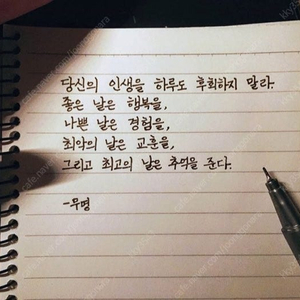 당신의 인생을 하루도 후회하지 말라.
좋은 날은 행복을,
나쁜 날은 경험을,
최악의 날은 교훈을,
그리고 최고의 날은 추억을 준다.
-무명